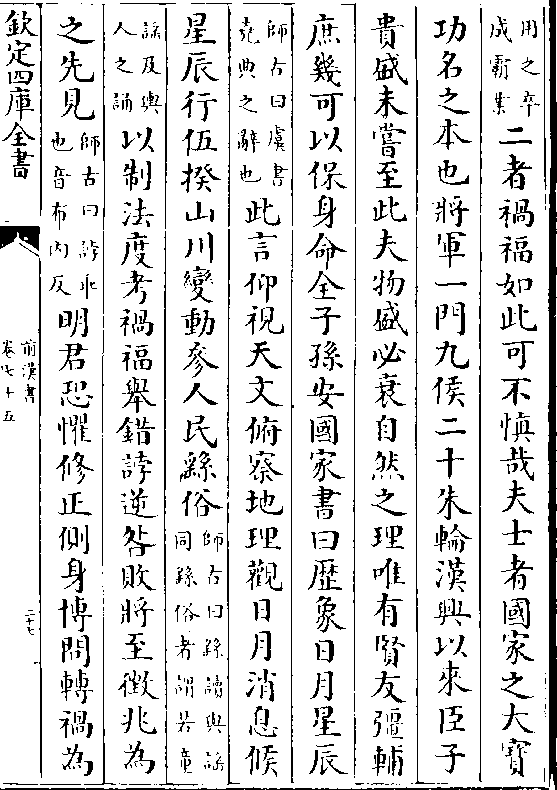 用之卒成霸業二者禍福如此可不慎哉夫士者國家之大寶
功名之本也將軍一門九侯二十朱輪漢興以來臣子
貴盛未嘗至此夫物盛必衰自然之理唯有賢友彊輔
庶幾可以保身命全子孫安國家書曰歴象日月星辰
師古曰虞書堯典之辭也此言仰視天文俯察地理觀日月消息候
星辰行伍揆山川變動參人民繇俗師古曰繇讀與謡同繇俗者謂若童
謡及輿人之誦以制法度考禍福舉錯誖逆咎敗將至徵兆為
之先見師古曰誖乖也音布內反明君恐懼修正側身博問轉禍為
欽定四庫全書
前漢書
卷七十五
二十七